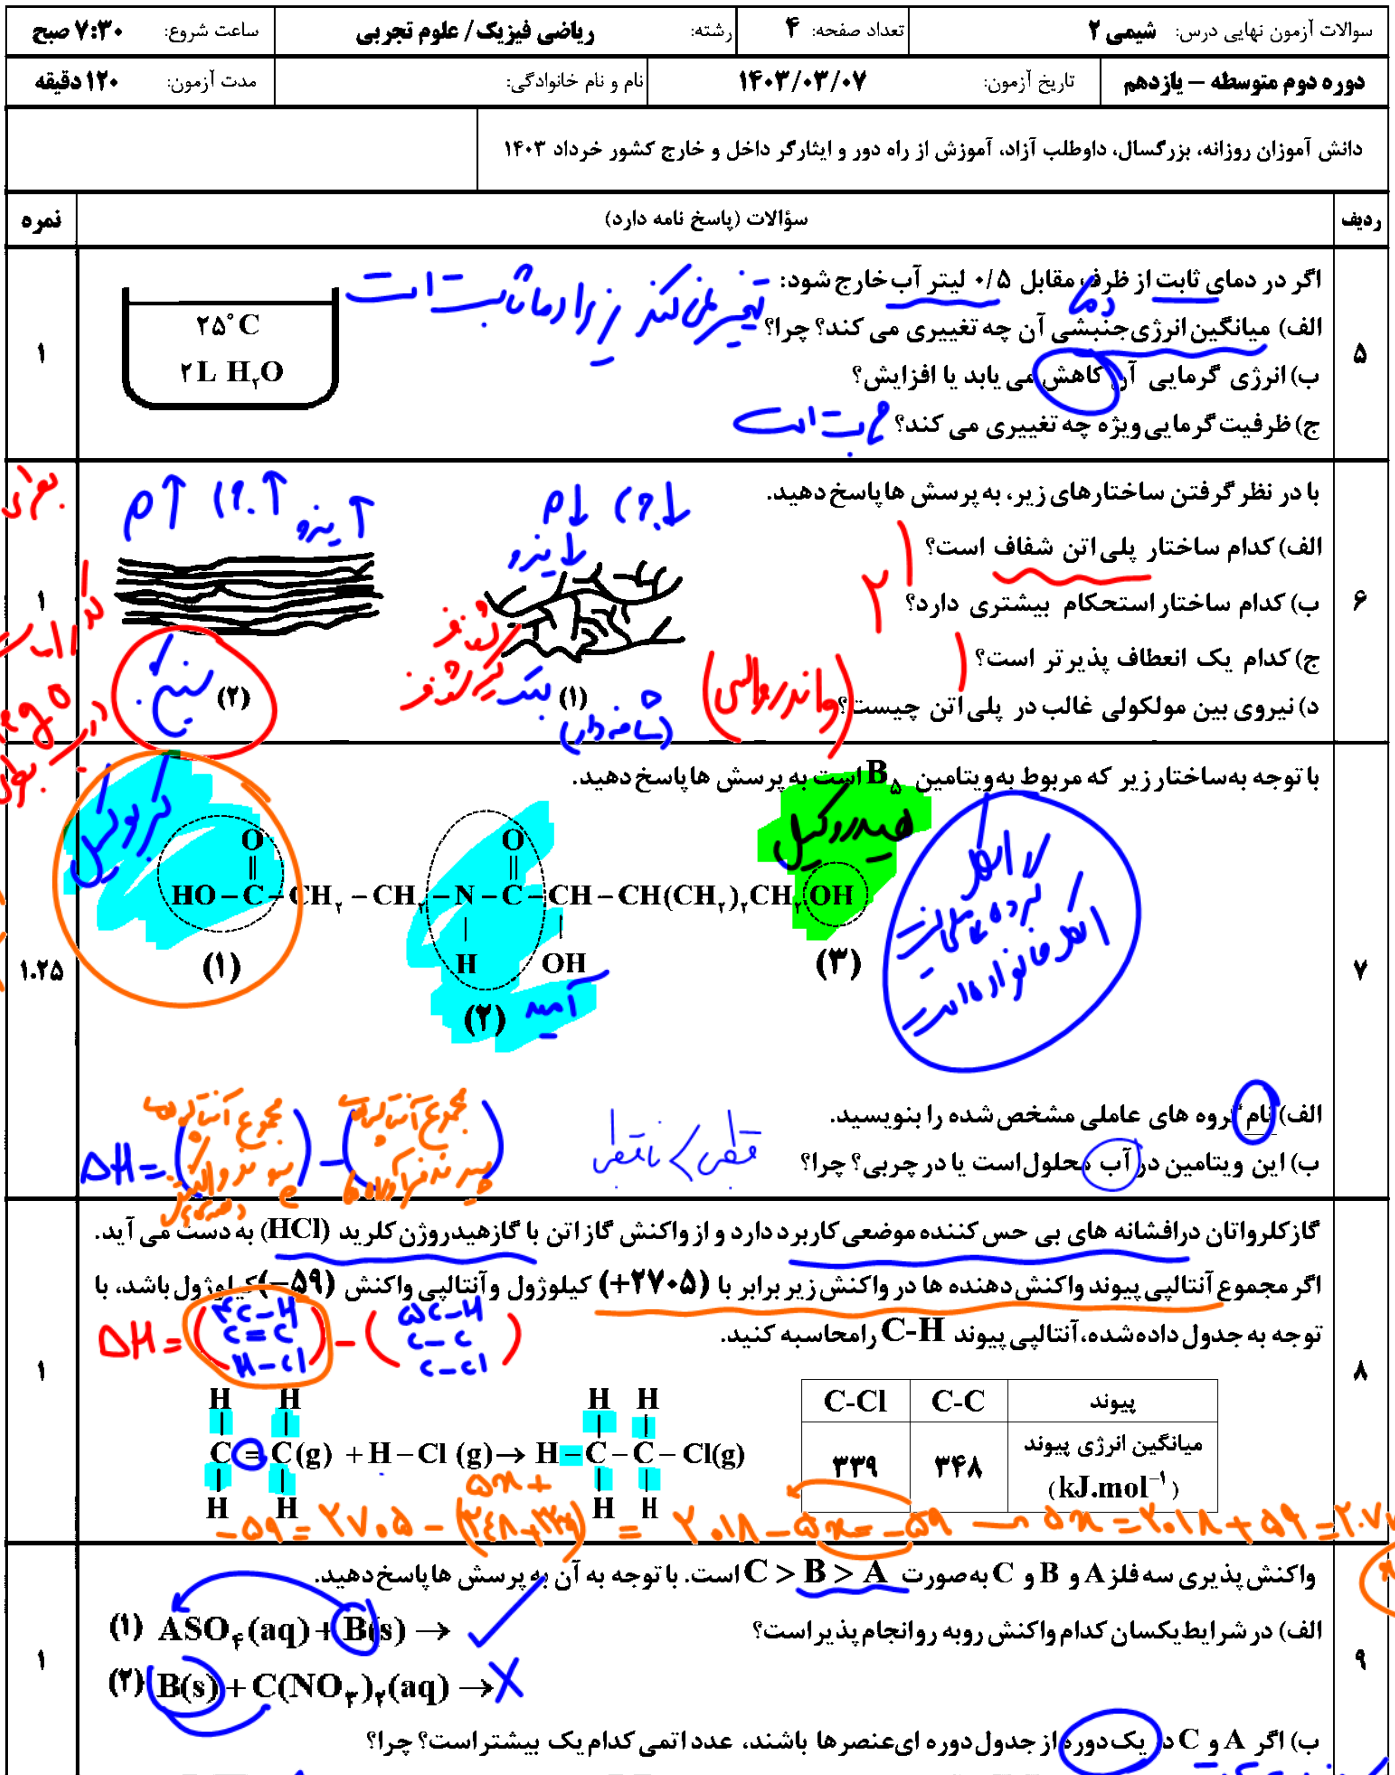 سوالات آزمون نهایی درس: شیمی ۲ تعداد صفحه: ۴ رشته: ریاضی فیزیک/ علوم تجربی ساعت شروع: ۷:۳۰ صبح
دوره دوم متوسطه – یازدهم تاریخ آزمون: ۱۴۰۳/۰۳/۰۷ نام و نام خانوادگی: مدت آزمون: ۱۲۰ دقیقه
دانش آموزان روزانه، بزرگسال، داوطلب آزاد، آموزش از راه دور و ایثارگر داخل و خارج کشور خرداد ۱۴۰۳
ردیف سؤالات (پاسخ نامه دارد) نمره
۵
اگر در دمای ثابت از ظرف مقابل ۰/۵ لیتر آب خارج شود:
الف) میانگین انرژی جنبشی آن چه تغییری می کند؟ چرا؟
دما
تغییر نمی کند زیرا دما ثابت است
ب) انرژی گرمایی آن کاهش می یابد یا افزایش؟
ج) ظرفیت گرمایی ویژه چه تغییری می کند؟
ثابت است
۲۵°C
۲L H۲O
۱
۶
با در نظر گرفتن ساختارهای زیر، به پرسش ها پاسخ دهید.
الف) کدام ساختار پلی اتن شفاف است؟ ۱
ب) کدام ساختار استحکام بیشتری دارد؟ ۲
ج) کدام یک انعطاف پذیرتر است؟ ۱
د) نیروی بین مولکولی غالب در پلی اتن چیست؟ (واندروالسی)
نیرو
نیرو
(۱) سبک
(شاخه دار)
(۲) سنگین
۱
۷
با توجه به ساختار زیر که مربوط به ویتامین B۵ است به پرسش ها پاسخ دهید.
کربوکسیل
هیدروکسیل
HO – C – CH۲ – CH۲ – N – C – CH – CH(CH۲)۲CH۲ OH
O O
H OH
(۱) (۲) (۳)
آمید
الف) نام گروه های عاملی مشخص شده را بنویسید.
ب) این ویتامین در آب محلول است یا در چربی؟ چرا؟
قطبی > ناقطبی
۱.۲۵
ΔH = ( ) – ( )
۸
گاز کلرواتان در افشانه های بی حس کننده موضعی کاربرد دارد و از واکنش گاز اتن با گاز هیدروژن کلرید (HCl) به دست می آید.
اگر مجموع آنتالپی پیوند واکنش دهنده ها در واکنش زیر برابر با (+۲۷۰۵) کیلوژول و آنتالپی واکنش (–۵۹) کیلوژول باشد، با
توجه به جدول داده شده، آنتالپی پیوند C-H را محاسبه کنید.
ΔH = (۴C–H C=C H–Cl) – (۵C–H C–C C–Cl)
پیوند C-C C-Cl
میانگین انرژی پیوند (kJ.mol⁻¹) ۳۴۸ ۳۳۹
H H H H
C = C(g) + H – Cl (g) → H – C – C – Cl(g)
H H H H
–۵۹ = ۲۷۰۵ – (۵x + ۳۴۸+۳۳۹) = ۲۰۱۸ – ۵x = –۵۹ → ۵x = ۲۰۱۸ + ۵۹ =
۱
۹
واکنش پذیری سه فلز A و B و C به صورت C > B > A است. با توجه به آن به پرسش ها پاسخ دهید.
الف) در شرایط یکسان کدام واکنش روبه رو انجام پذیر است؟
(۱) ASO۴(aq) + B(s) →
(۲) B(s) + C(NO۳)۲(aq) →
ب) اگر A و C در یک دوره از جدول دوره ای عنصرها باشند، عدد اتمی کدام یک بیشتر است؟ چرا؟
۱